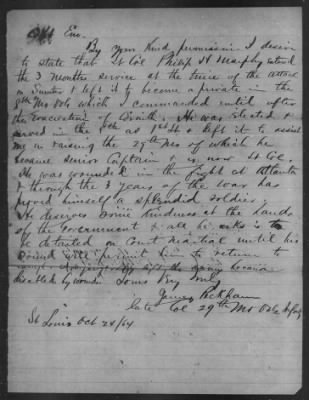 By your kind permission I desire
to state that Lt Col Philip H Murphy entered
the 3 months service at the time of the attack
on Sumter & left it to become a private in the
8th Mo Vols which I commanded until after
the evacuation of Corinth. He was elected &
served in the 8th as 1st Lt & left it to assist
me in raising the 29th Mo of which he
became senior Captain & is now Lt Col.
He was wounded in the fight at Atlanta
& through the 3 years of the war has
proved himself a splendid soldier.
He deserves some kindness at the hands
of the Government & all he asks is to
be detailed on Court Martial until his
wound will permit him to return to
disabled by wounds Yours Very Truly
James Peckham
late Col 29th Mo Vols Infty
St Louis Oct 24/64